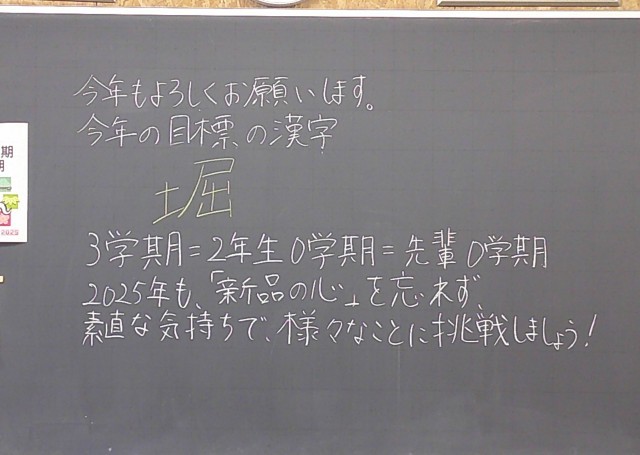 今年もよろしくお願いします。
今年の目標の漢字
堀
3学期=2年生0学期=先輩0学期
2025年も、「新品の心」を忘れず、
素直な気持ちで、様々なことに挑戦しましょう!
期
期
2025